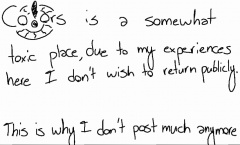 Colors is a somewhat
toxic place, due to my experiences
here I don't wish to return publicly.
This is why I don't post much anymore